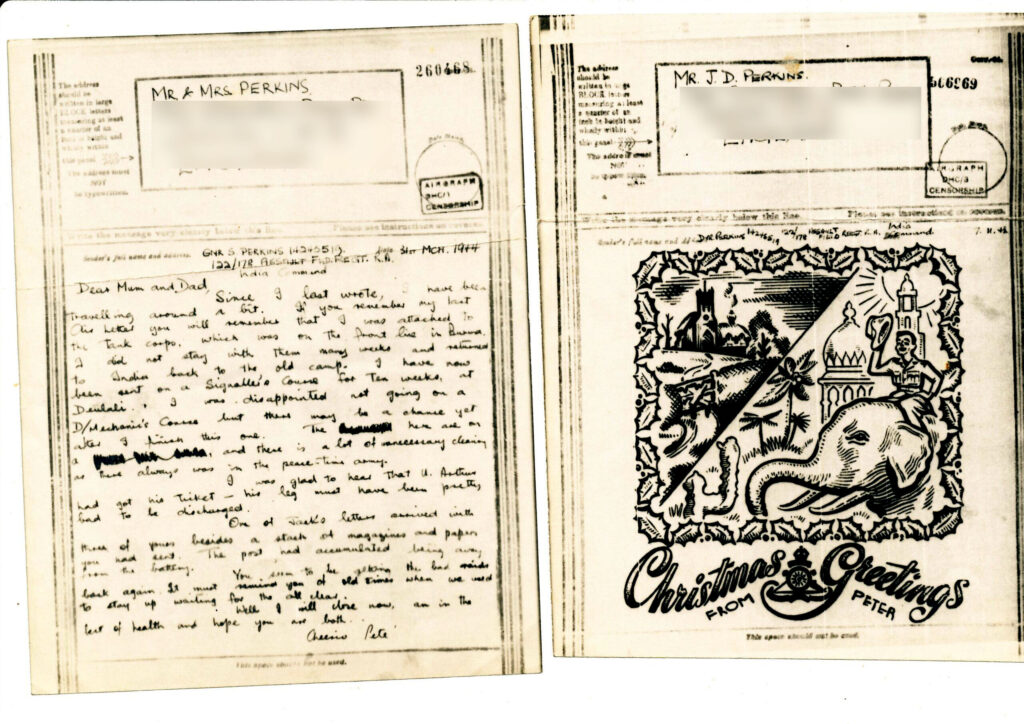 260468.
The address
should be
written in large
BLOCK letters
measuring at least
a quarter of an
inch in height and
wholly within
this panel
The address must
NOT
be typewritten.
MR & MRS. PERKINS
Date Stamp
AIRGRAPH
DHC/1
CENSORSHIP
the message very clearly below this line.
Please see instructions on reverse.
Sender's full name and address.
GNR S. PERKINS 14245519.
Date 31st MCH. 1944
122/178 ASSAULT FLD. REGT. R.A.
India Command
Dear Mum and Dad,
Since I last wrote, I have been
travelling around a bit. If you remember my last
Air Letter you will remember that I was attached to
the Tank corps, which was on the front line in Burma.
I did not stay with them many weeks and returned
to India back to the old camp. I have now
been sent on a Signaller's Course for Ten weeks, at
Deulali. I was disappointed not going on a
D/Mechanic's Course but there may be a chance yet
after I finish this one. The here are on
a , and there is a lot of unnecessary cleaning
as there always was in the peace-time army.
I was glad to hear that U. Arthur
had got his Ticket – his leg must have been pretty
bad to be discharged.
One of Jack's letters arrived with
three of yours besides a stack of magazines and papers
you had sent. The post had accumulated being away
from the battery.
You seem to be getting the bad raids
back again. It must remind you of old times when we used
to stay up waiting for the all clear.
Well I will close now, am in the
best of health and hope you are both.
Cheerio Pete
This space should not be used.
The address
should be
written in large
BLOCK letters
measuring at least
a quarter of an
inch in height and
wholly within
this panel
The address must
NOT
MR. J. D. PERKINS.
506969
Date Stamp
AIRGRAPH
DHC/3
CENSORSHIP
the message very clearly below this line.
Please see instructions on reverse.
Sender's full name and
PERKINS 14245519
122/178 ASSAULT FIELD REGT R.A.
India Command
7. 11. 43
Christmas Greetings
FROM PETER
This space should not be used.